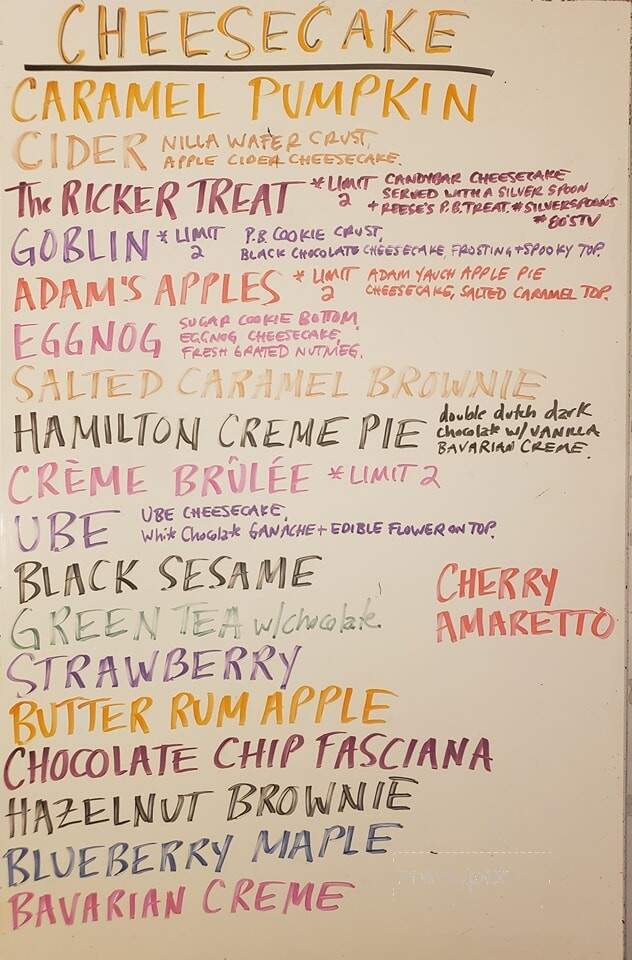 CHEESECAKE
CARAMEL PUMPKIN
CIDER NILLA WAFER CRUST,
APPLE CIDER CHEESECAKE.
The RICKER TREAT * LIMIT 2 CANDYBAR CHEESECAKE
SERVED WITH A SILVER SPOON
+ REESE'S P.B. TREAT, #SILVERSPOONS
#80'STV
GOBLIN * LIMIT 2 P.B. COOKIE CRUST,
BLACK CHOCOLATE CHEESECAKE, FROSTING + SPOOKY TOP.
ADAM'S APPLES * LIMIT 2 ADAM YAUCH APPLE PIE
CHEESECAKE, SALTED CARAMEL TOP.
EGGNOG SUGAR COOKIE BOTTOM,
EGGNOG CHEESECAKE,
FRESH GRATED NUTMEG.
SALTED CARAMEL BROWNIE
HAMILTON CREME PIE double dutch dark
chocolate w/ VANILLA
BAVARIAN CREME.
CRÈME BRÛLÉE * LIMIT 2
UBE UBE CHEESECAKE,
White Chocolate GANACHE + EDIBLE FLOWER ON TOP.
BLACK SESAME
GREEN TEA w/chocolate.
CHERRY
AMARETTO
STRAWBERRY
BUTTER RUM APPLE
CHOCOLATE CHIP FASCIANA
HAZELNUT BROWNIE
BLUEBERRY MAPLE
BAVARIAN CREME